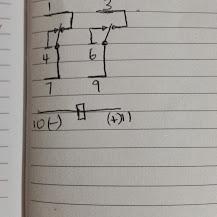 1 3
4 6
7 9
10(-) (+)11